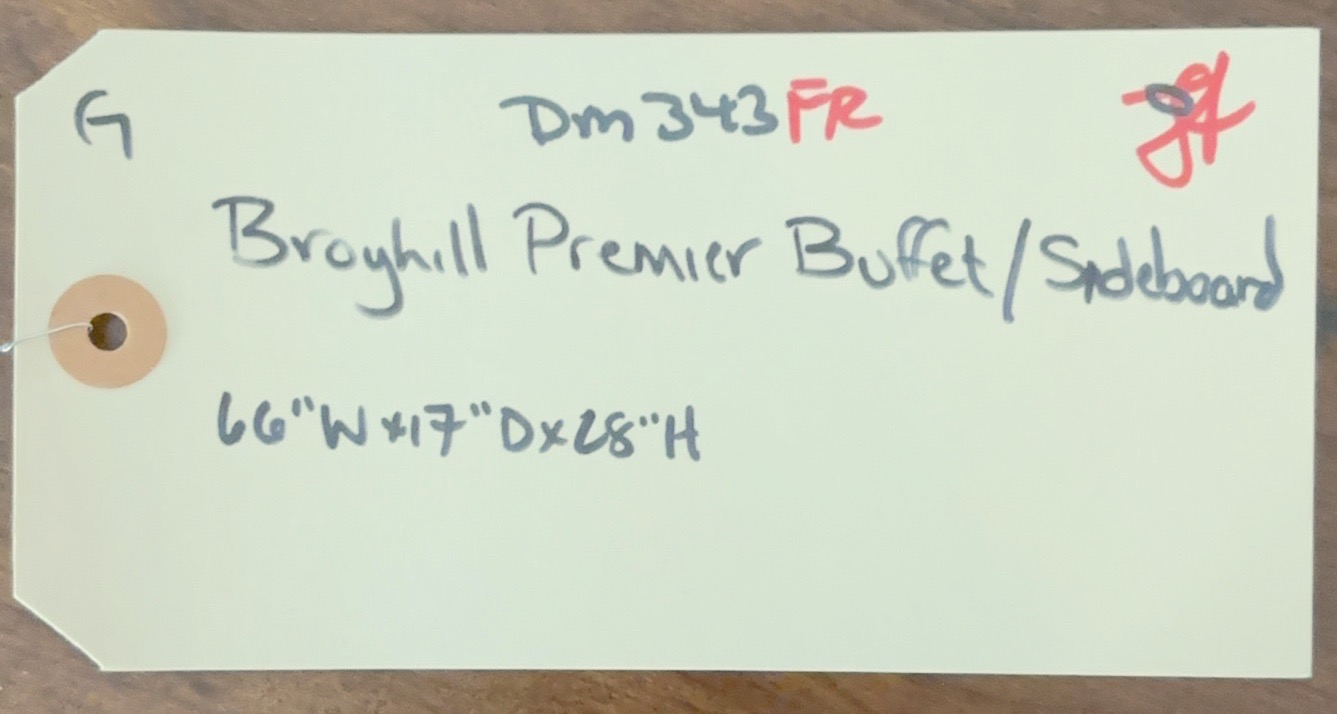 G Dm343FR
Broyhill Premier Buffet/Sideboard
66"W x17"Dx28"H